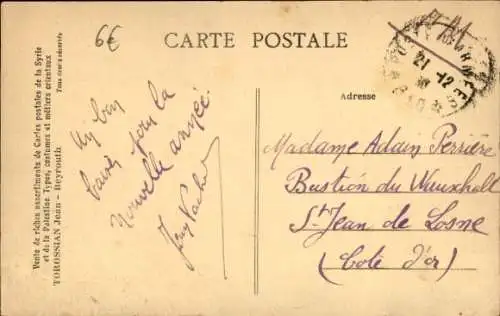 6€
CARTE POSTALE
Adresse
21 -12
Vente de riches assortiments de Cartes postales de la Syrie
et de la Palestine Types, costumes et métiers orientaux
TOROSSIAN Jean - Beyrouth
Tous droits réservés
Un bon
baiser pour la
nouvelle année
Madame Adain Perrière
Bastion du Wauxhall
St Jean de Losne
(Cote d'or)